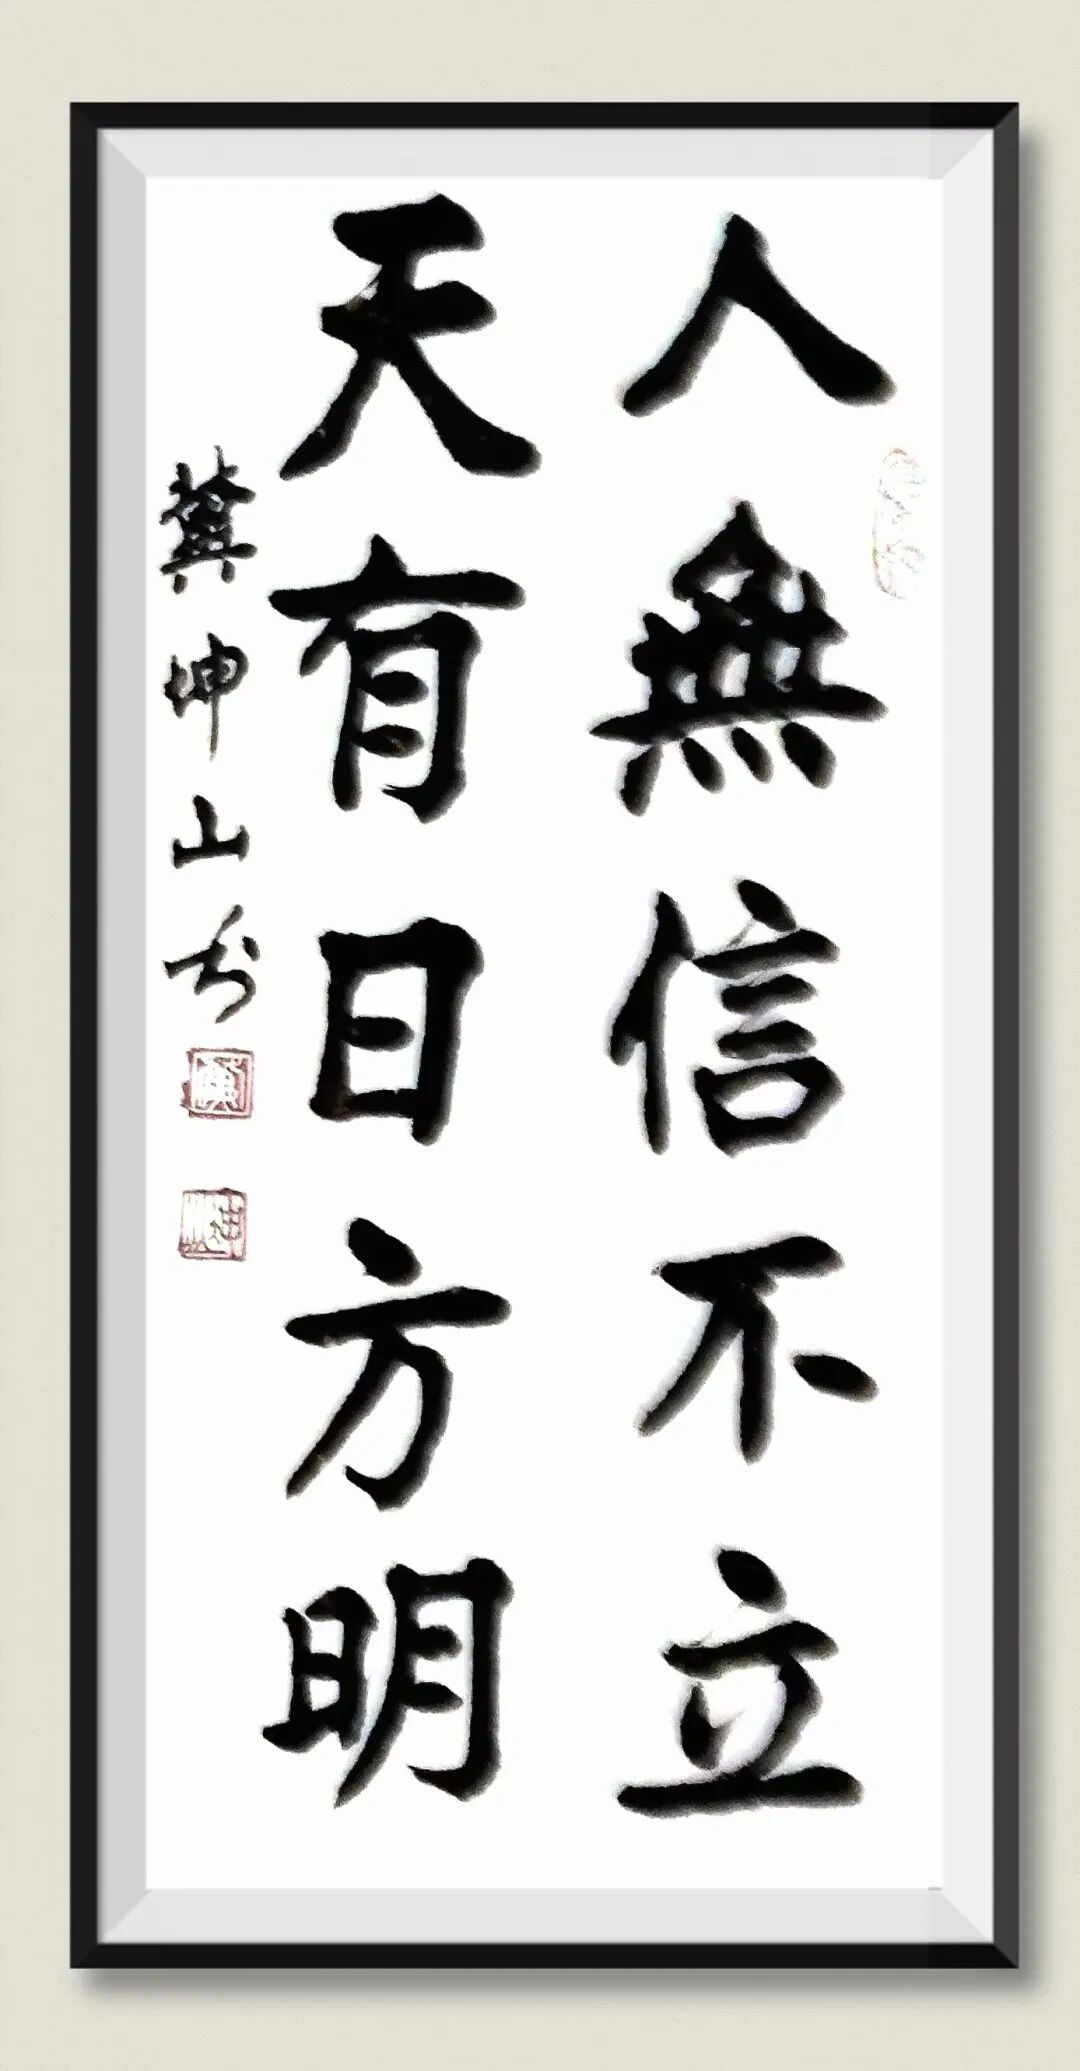 人無信不立
天有日方明
冀坤山书